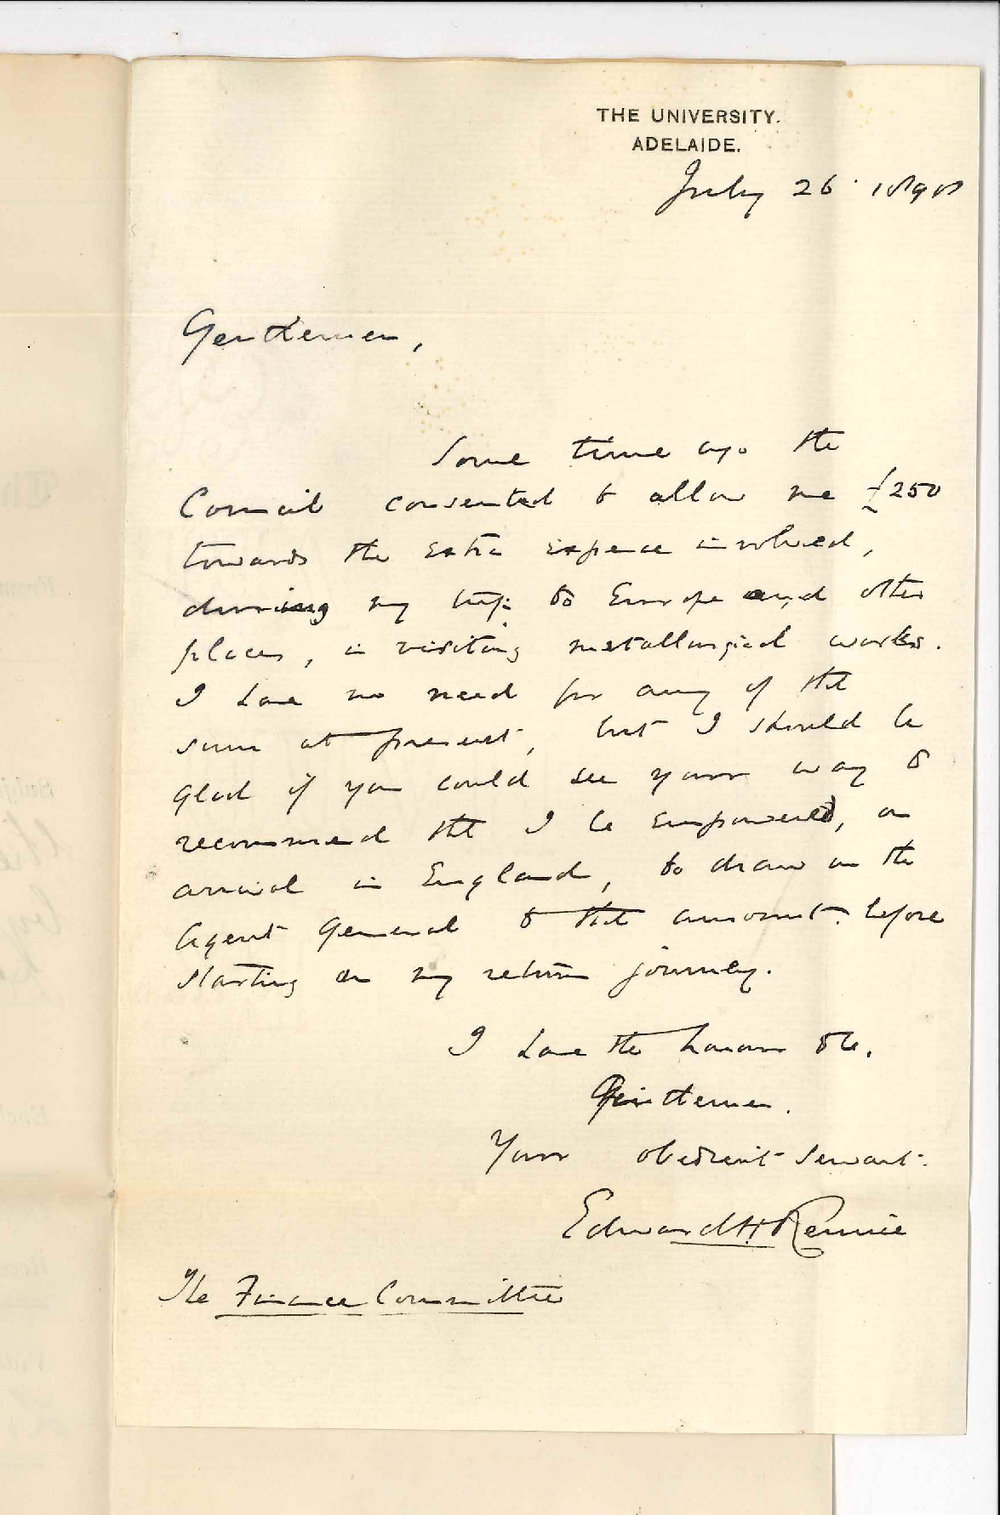 THE UNIVERSITY.
ADELAIDE.
July 26 1898
Gentlemen,
Some time ago the
Council consented to allow me £250
towards the extra expense involved,
during my trip to Europe and other
places, in visiting metallurgical works.
I have no need for any of this
sum at present, but I should be
glad if you could see your way to
recommend that I be empowered, on
arrival in England, to draw on the
Agent General to that amount before
starting on my return journey.
I have the honour to be,
Gentlemen.
Your obedient servant.
Edward H Rennie
The Finance Committee